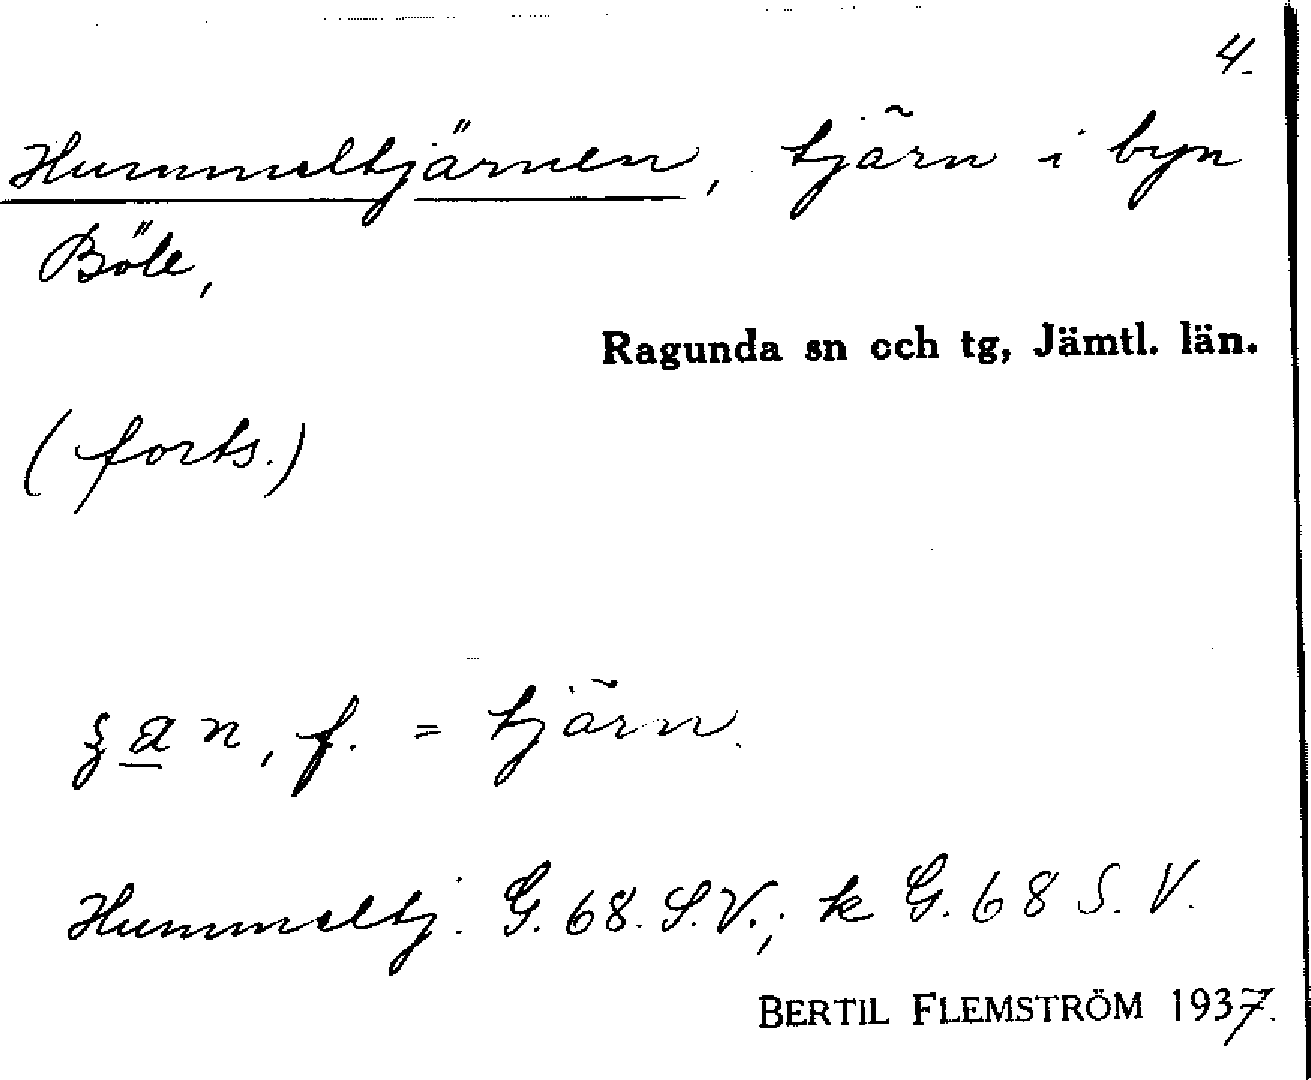 4.
Hummeltjärnen, tjärn i byn
Böle,
Ragunda sn och tg, Jämtl. län.
(forts.)
n, f. = tjärn.
Hummeltj. G. 68. S.V.; k G. 68 S. V.
BERTIL FLEMSTRÖM 1937.